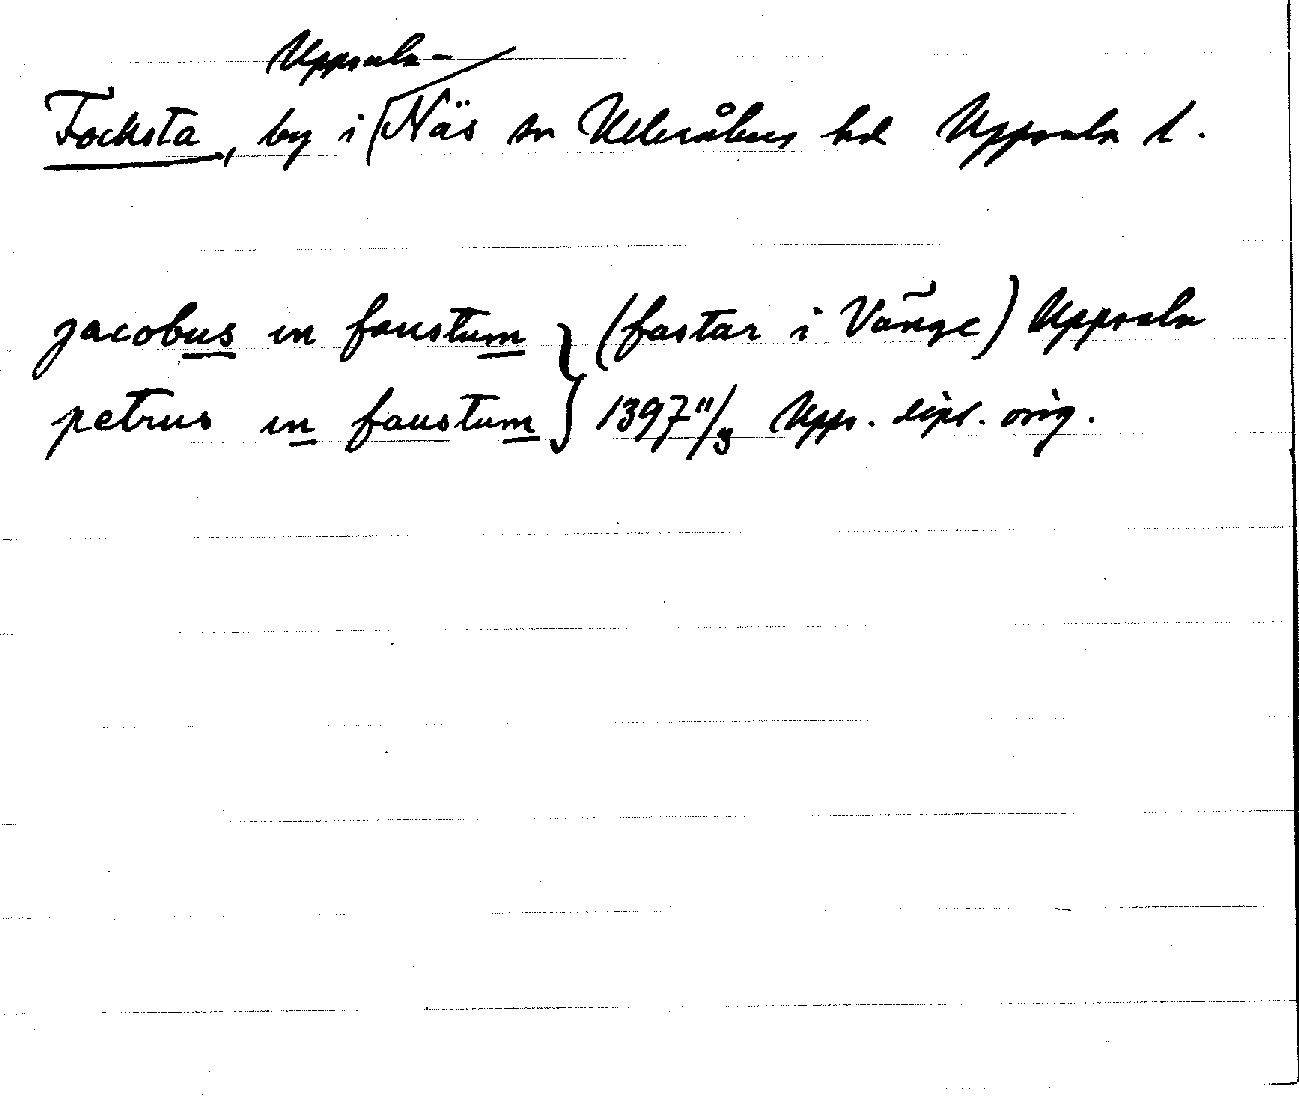 Uppsala-
Focksta, by i Näs sn Ulleråkers hd Uppsala l.
jacobus in faustum } (fastar i Vänge) Uppsala
petrus in faustum } 1397 11/3 Upps. dipl. orig.